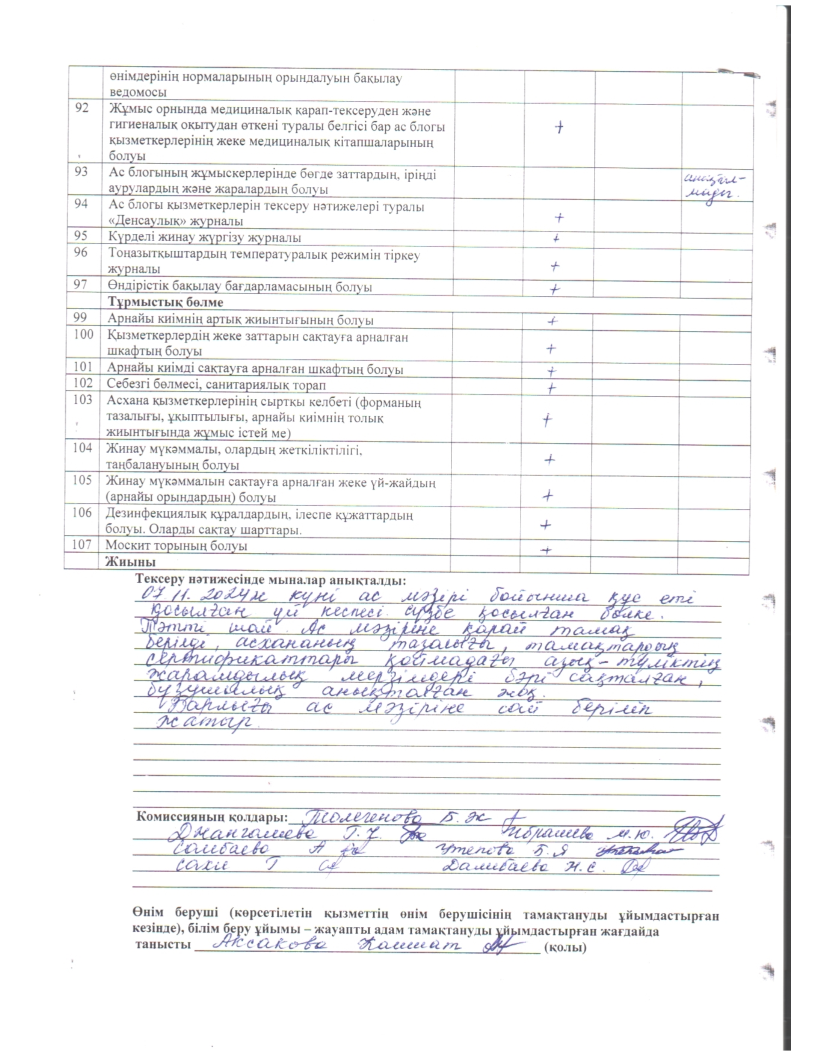 өнімдерінің нормаларының орындалуын бақылау
ведомосы
92 Жұмыс орнында медициналық қарап-тексеруден және
гигиеналық оқытудан өткені туралы белгісі бар ас блогы +
қызметкерлерінің жеке медициналық кітапшаларының
болуы
93 Ас блогының жұмыскерлерінде бөгде заттардың, іріңді анықтал-
аурулардың және жаралардың болуы мады.
94 Ас блогы қызметкерлерін тексеру нәтижелері туралы
«Денсаулық» журналы +
95 Күрделі жинау жүргізу журналы +
96 Тоңазытқыштардың температуралық режимін тіркеу
журналы +
97 Өндірістік бақылау бағдарламасының болуы +
Тұрмыстық бөлме
99 Арнайы киімнің артық жиынтығының болуы +
100 Қызметкерлердің жеке заттарын сақтауға арналған
шкафтың болуы +
101 Арнайы киімді сақтауға арналған шкафтың болуы +
102 Себезгі бөлмесі, санитариялық торап +
103 Асхана қызметкерлерінің сыртқы келбеті (форманың
тазалығы, ұқыптылығы, арнайы киімнің толық +
жиынтығында жұмыс істей ме)
104 Жинау мүкәммалы, олардың жеткіліктілігі,
таңбалануының болуы +
105 Жинау мүкәммалын сақтауға арналған жеке үй-жайдың
(арнайы орындардың) болуы +
106 Дезинфекциялық құралдардың, ілеспе құжаттардың
болуы. Оларды сақтау шарттары. +
107 Москит торының болуы +
Жиыны
Тексеру нәтижесінде мыналар анықталды:
07.11.2024ж күні ас мәзірі бойынша құс еті
қосылған үй кеспесі ірімшік қосылған бөлке.
Тәтті шай. Ас мәзіріне қарай тамақ
берілді, асхананың тазалығы, тамақтардың
сертификаттары қоймадағы азық-түліктің
жарамдылық мерзімдері бәрі сақталған,
бұзушылық анықталған жоқ.
Барлығы ас мәзіріне сай беріліп
жатыр.
Комиссияның қолдары: Толегенова Б.Ж
Джангалиева Г.У. Ибрашева М.Ю.
Самбаева А Утепова Б.Я
Сахи Г Далибаева Н.С.
Өнім беруші (көрсетілетін қызметтің өнім берушісінің тамақтануды ұйымдастырған
кезінде), білім беру ұйымы – жауапты адам тамақтануды ұйымдастырған жағдайда
танысты Аксакова Камшат (қолы)